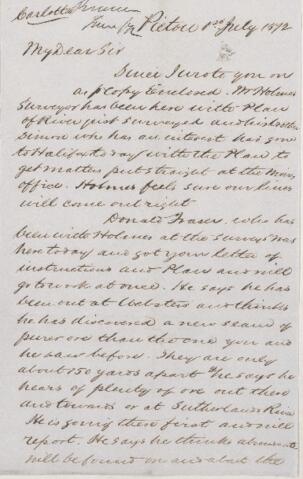 Pictou 1st July 1872
My Dear Sir
Since I wrote you on
as p Copy Enclosed. Mr Holmes
Surveyor has been here with Plan
of River just surveyed and his brother
Simon who has an interest has gone
to Halifax today with the Plan to
get matters put straight at the Mines
office. Holmes feels sure our lines
will come out right
Donald Fraser, who has
been with Holmes at the surveys was
here today and got your letter of
instructions and Plan and will
go to work at once. He says he has
been out at Websters and thinks
he has discovered a new seam of
purer ore than the one you and
he saw before. They are only
about 150 yards apart & he says he
hears of plenty of ore out there
and towards or at Sutherlands River
He is going there first and will
report. He says he thinks
will be found on and about the